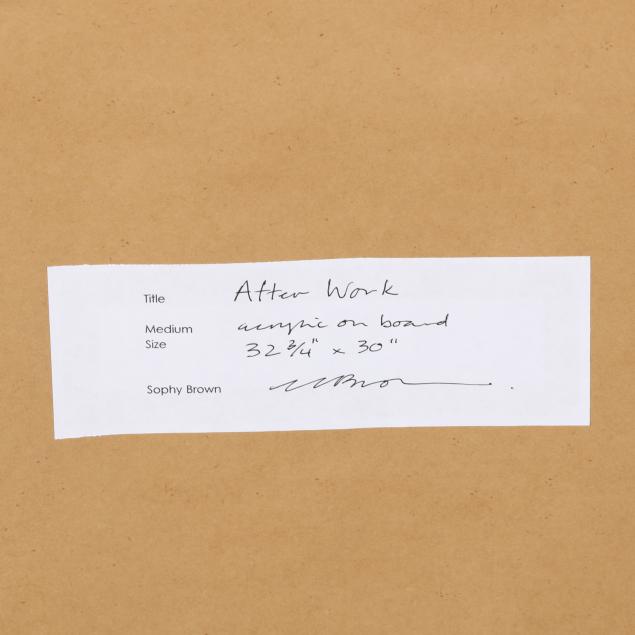 Title After Work
Medium acrylic on board
Size 32 3/4" x 30"
Sophy Brown